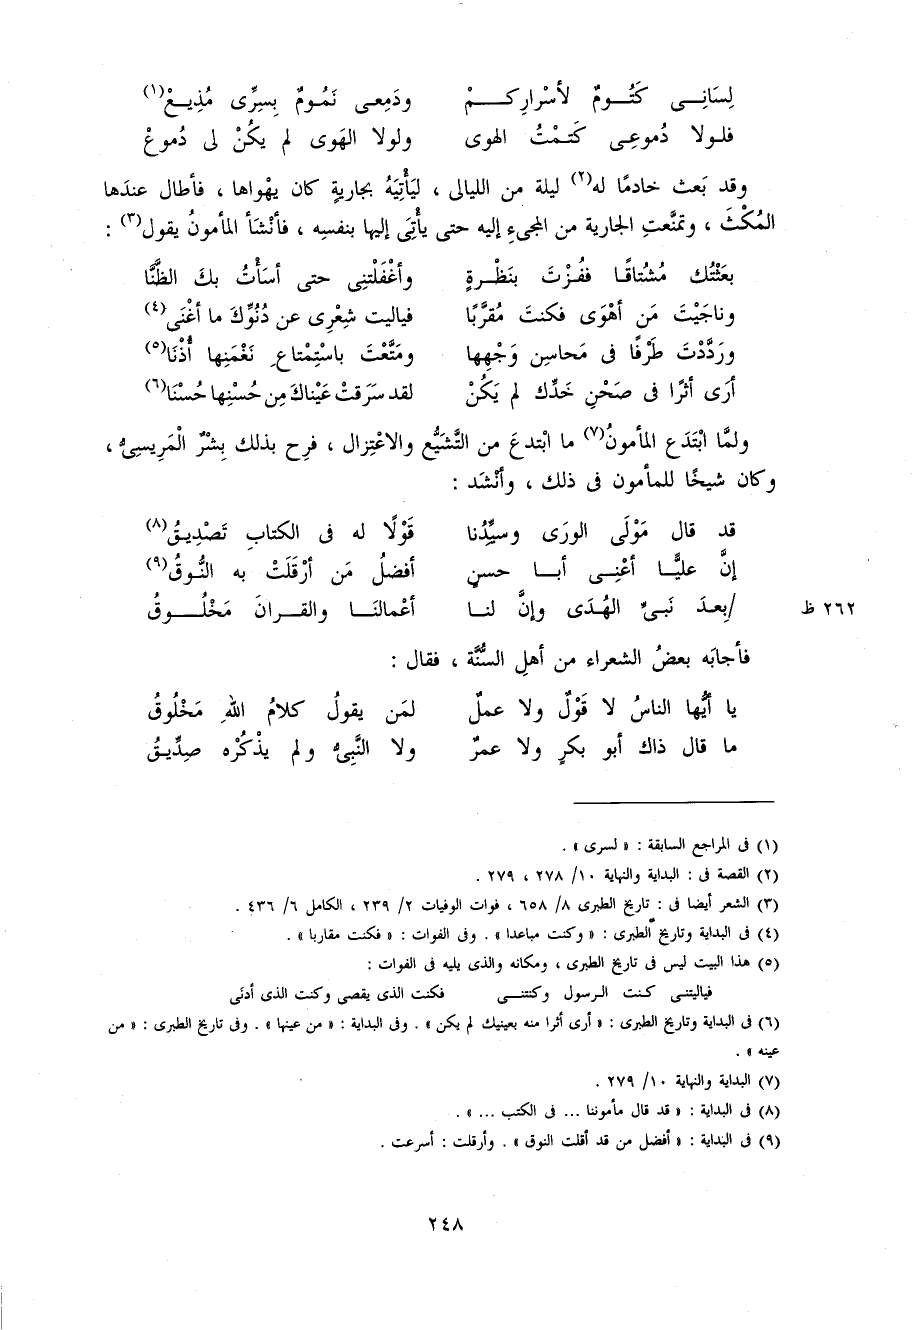 لِسَانِــى كَتُــومٌ لأسْرارِكــمْ ودَمِعى نَمُومٌ بِسِرِّى مُذِيــعْ(١)
فلـولا دُموعِـى كَتـمْتُ الهوى ولولا الهَوى لم يكُنْ لى دُموعْ
وقد بَعث خادمًا له(٢) ليلة من الليالى ، ليَأْتِيَهُ بجاريةٍ كان يهْواها ، فأطال عندَها
المُكْثَ ، وتمنَّعتِ الجارية من المجىءِ إليه حتى يأْتِىَ إليها بنفسِه ، فأنْشأ المأمونُ يقول(٣) :
بعَثْتُك مُشْتاقًـا ففُـزْتَ بنَظْـرةٍ وأغْفَلْتنِى حتى أسَأْتُ بكَ الظَّنَّا
وناجَيْتَ مَن أهْوَى فكنتَ مُقرَّبًا فياليت شِعْرِى عن دُنُوِّكَ ما أغْنَى(٤)
وردَّدْتَ طَرْفًا فى مَحاسِنِ وَجْهِها ومَتَّعْتَ باسْتِمْتاعِ نَغْمَتِها أُذْنَا(٥)
أرَى أثرًا فى صَحْنِ خَدِّك لم يَكُنْ لقد سَرَقتْ عَيْناكَ مِن حُسْنِها حُسْنَا(٦)
ولمَّا ابْتَدَع المأمونُ(٧) ما ابْتدعَ من التَّشَيُّع والاعْتِزال ، فرِح بذلك بِشْرٌ الْمَريسِىُّ ،
وكان شيخًا للمأمون فى ذلك ، وأنْشَد :
قد قال مَوْلَى الورَى وسيِّدُنا قَوْلًا له فى الكتابِ تَصْدِيـقُ(٨)
إنَّ عليًّـا أعْنِـى أبـا حسنٍ أفضلُ مَن أرْقَلَتْ به النُّوقُ(٩)
/بعدَ نَبـىِّ الهُدَى وإنَّ لنـا أعْمالنَـا والقـرانَ مَخْلُـوقُ ٢٦٢ ظ
فأجابَه بعضُ الشعراء من أهلِ السُّنَّة ، فقال :
يا أيُّها الناسُ لا قَوْلٌ ولا عملٌ لمَن يقولُ كلامُ اللهِ مَخْلُوقُ
ما قال ذاك أبو بكرٍ ولا عمرٌ ولا النَّبِىُّ ولم يذْكُرْه صِدِّيقُ
(١) فى المراجع السابقة : « لسرى » .
(٢) القصة فى : البداية والنهاية ١٠/ ٢٧٨ ، ٢٧٩ .
(٣) الشعر أيضا فى : تاريخ الطبرى ٨/ ٦٥٨ ، فوات الوفيات ٢/ ٢٣٩ ، الكامل ٦/ ٤٣٦ .
(٤) فى البداية وتاريخ الطبرى : « وكنت مباعدا » . وفى الفوات : « فكنت مقاربا » .
(٥) هذا البيت ليس فى تاريخ الطبرى ، ومكانه والذى يليه فى الفوات :
فياليتنـى كـنت الـرسول وكنتنـى فكنت الذى يقصى وكنت الذى أدنَى
(٦) فى البداية وتاريخ الطبرى : « أرى أثرا منه بعينيك لم يكن » . وفى البداية : « من عينها » . وفى تاريخ الطبرى : « من
عينه » .
(٧) البداية والنهاية ١٠/ ٢٧٩ .
(٨) فى البداية : « قد قال مأموننا ... فى الكتب ... » .
(٩) فى البداية : « أفضل من قد أقلت النوق » . وأرقلت : أسرعت .
٢٤٨